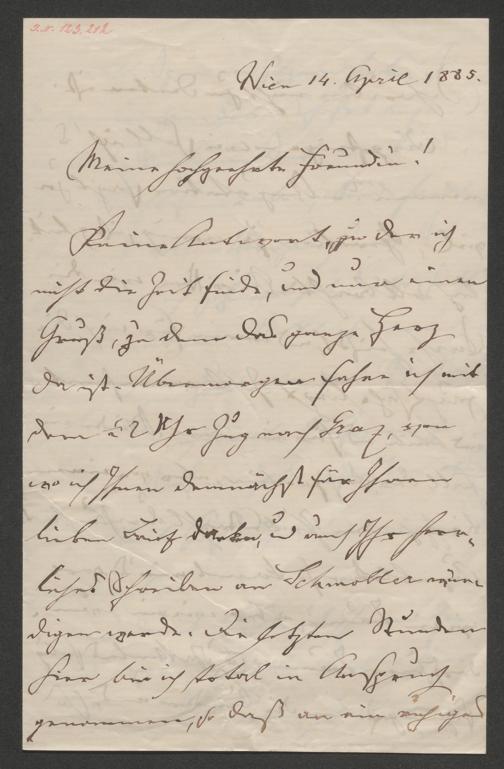 J.N. 123.212
Wien 14. April 1885.
Meine hochgeehrte Freundin!
Keine Antwort, zu der ich
nicht die Zeit finde, und nur einen
Gruß, zu dem das ganze Herz
da ist. Übermorgen fahre ich mit
dem 2 Uhr Zug nach Graz, von
wo ich Ihnen demnächst für Ihren
lieben Brief danken, und auch Ihr herr-
liches Schreiben an wür-
digen werde. Die letzten Stunden
hier bin ich total in Anspruch
genommen, so daß an ein ruhiges